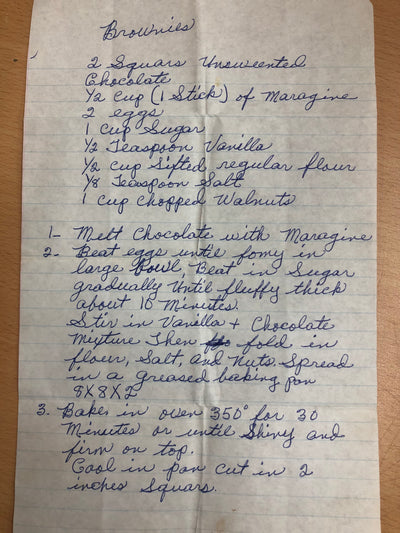 Brownies
2 Squars Unsweented
Chocolate
1/2 Cup (1 Stick) of Maragine
2 eggs
1 cup Sugar
1/2 Teaspoon Vanilla
1/2 cup Sifted regular flour
1/8 Teaspoon Salt
1 cup Chopped Walnuts
1- Melt Chocolate with Maragine
2. Beat eggs until fomy in
large Bowl, Beat in Sugar
gradually Until fluffy thick
about 10 Minutes.
Stir in Vanilla + Chocolate
Mixture Then fold in
flour, Salt, and Nuts. Spread
in a greased baking pan
8X8X2
3. Bakes in oven 350° for 30
Minutes or until Shiny and
firm on top.
Cool in pan cut in 2
inches Squars.